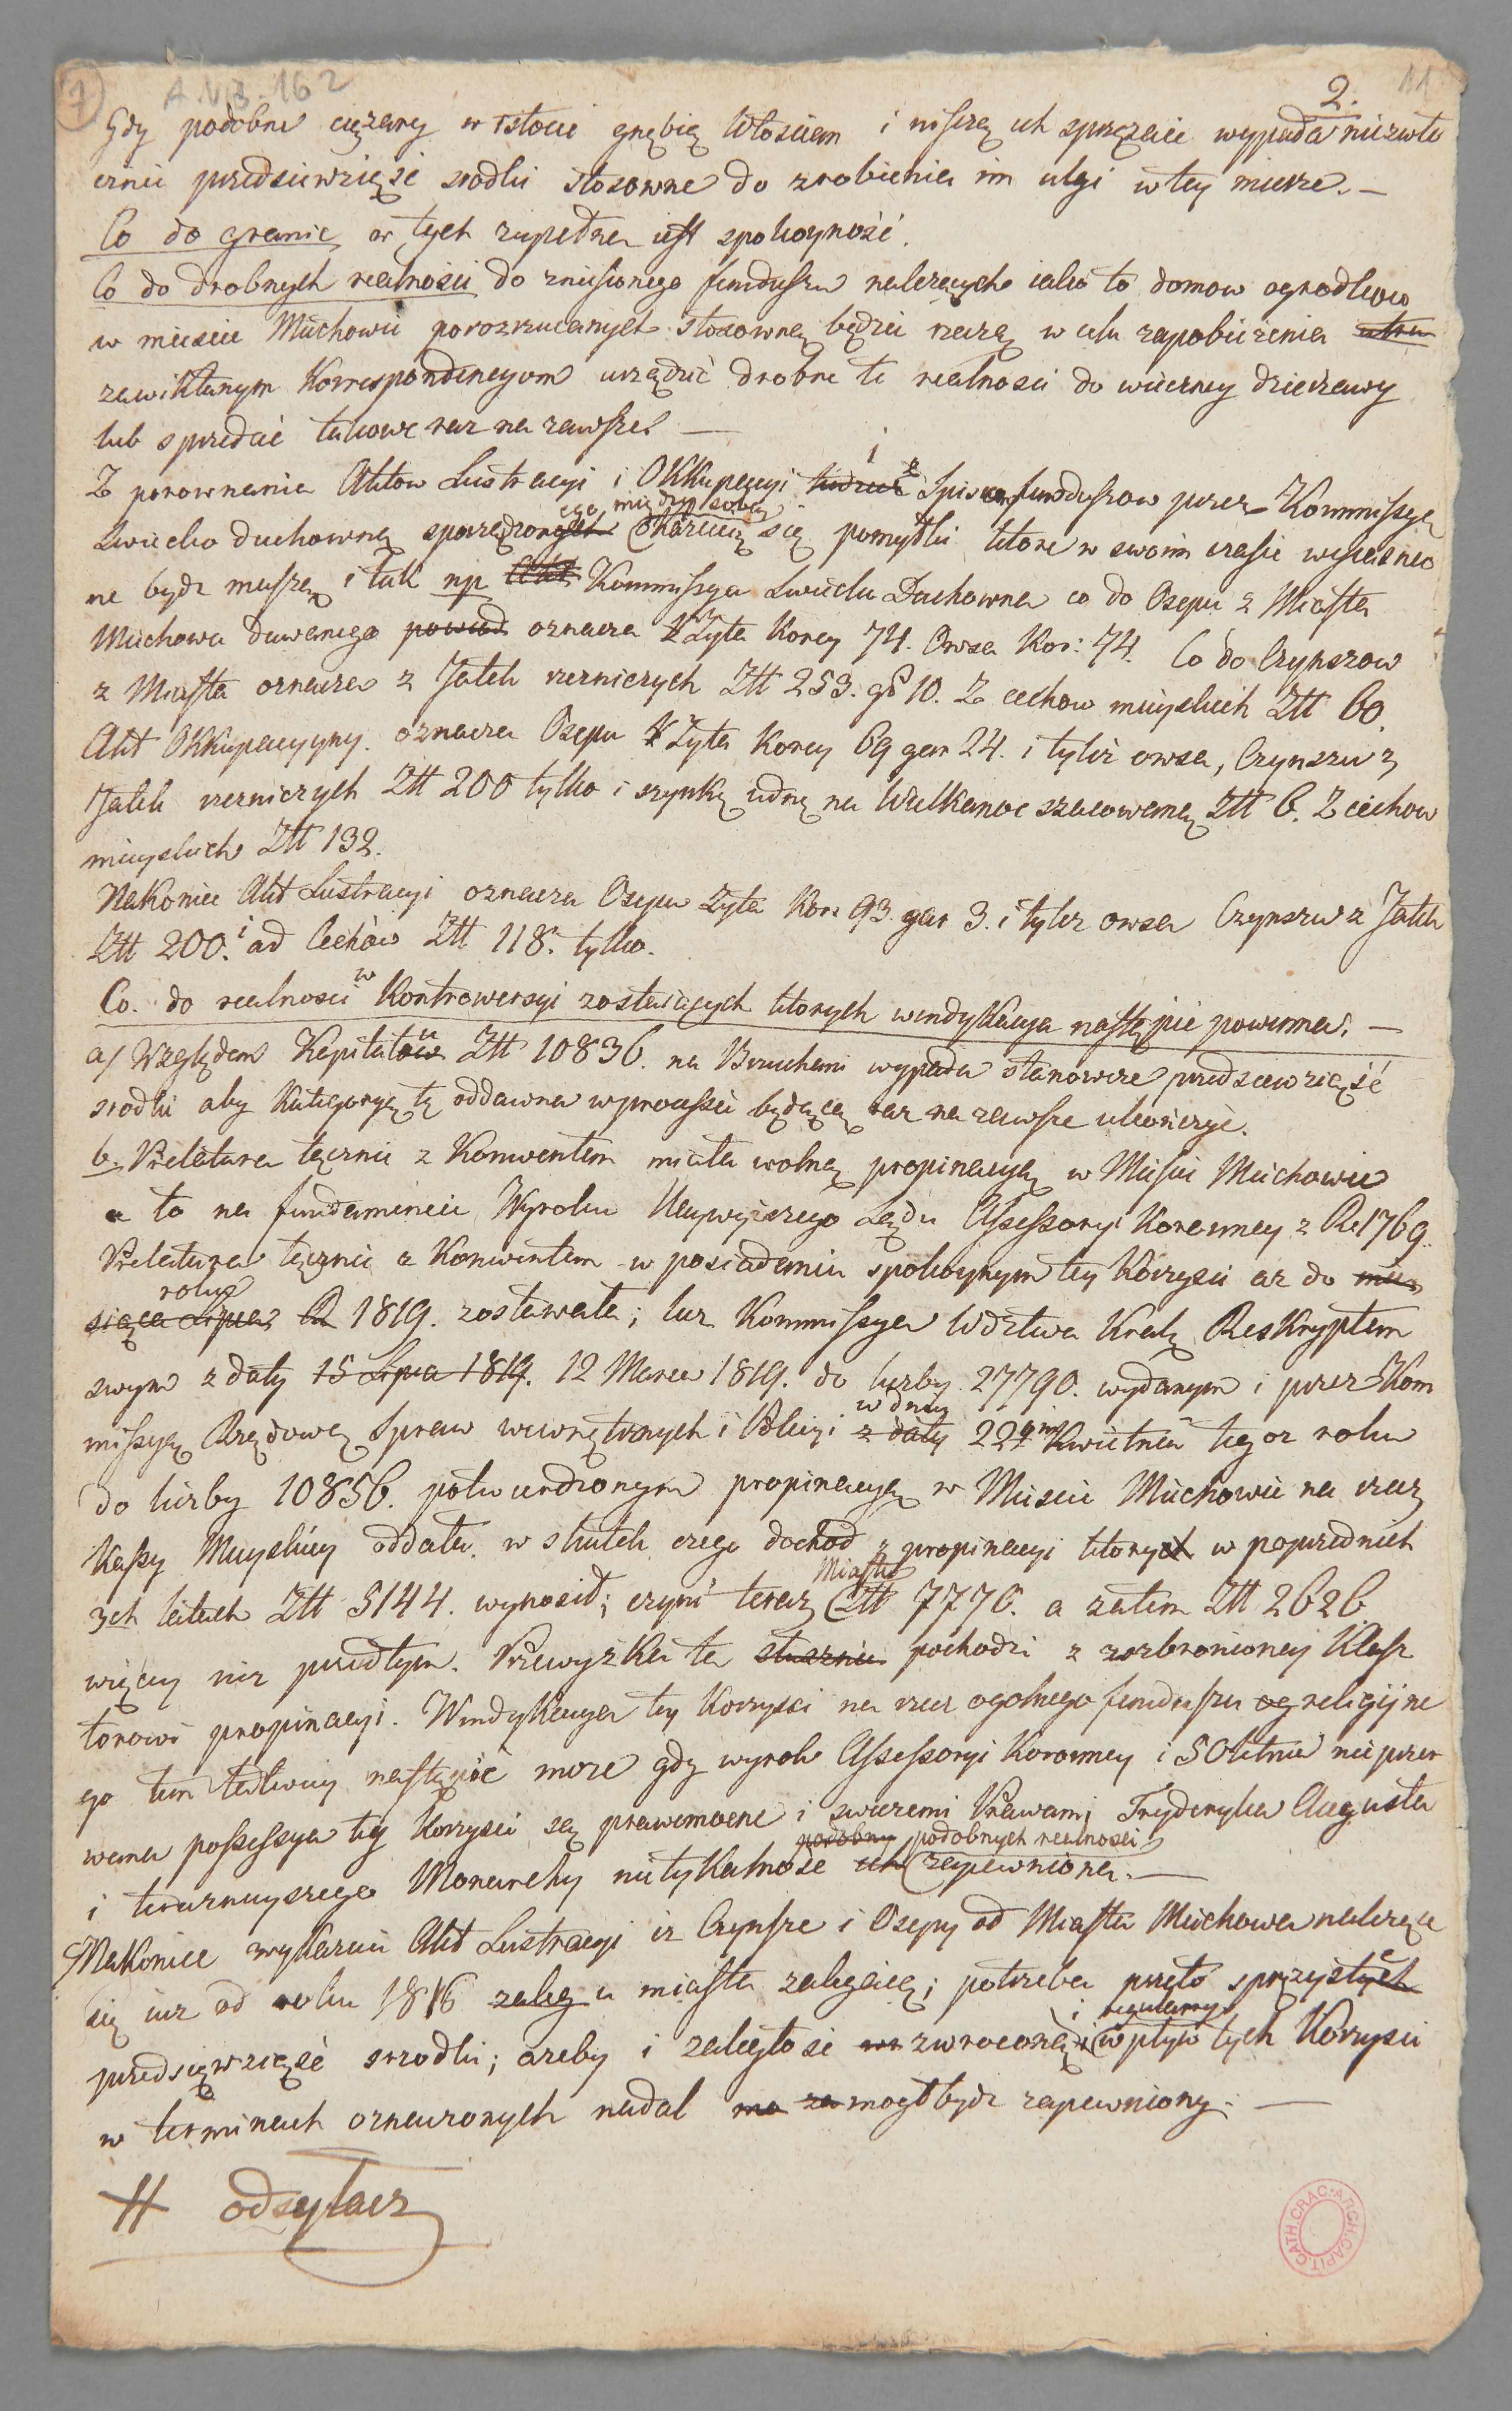 7
A.V.B. 162
2.
11
Gdy podobne ciężary w istocie gnębią Włościan i niszczą ich sprzężaie wypada niezwło
cznie przedsiewziąść srodki stosowne do zrobienia im ulgi w tey mierze. —
Co do granic w tych zupełna iest spokoyność.
Co do drobnych realności do zniesionego funduszu należących iako to domow ogrodkow
w miescie Miechowie porozrzucanych stosowną będzie rzeczą w celu zapobieżenia
zawikłanym Korrespondencyom urządzić drobne te realności do wieczney dzierżawy
lub sprzedać takowe raz na zawsze. —
Z porownania Aktow Lustracyi i Okkupacyi i tudzież z Spisem funduszow przez Kommissyą
Swiecko duchowną sporządzonych ego między sobą okazuią się pomyłki ktore w swoim czasie wyiasnio
ne bydz muszą, i tak np Akt Kommissya Swiecko Duchowna co do Osepu z Miasta
Miechowa dawanego powiad oznacza w Żyta Korcy 74. Owsa Kor: 74. Co do Czynszow
z Miasta oznacza z Jatek rzezniczych Złt 253. gr 10. Z cechow mieyskich Złt 60.
Akt Okkupacyyny oznacza Osepu Żyta Korcy 69 gar 24. i tyleż owsa, Czynszu z
Jatek rzezniczych Złt 200 tylko i szynkę iedną na Wielkanoc szacowaną Złt 6. Z cechow
mieyskich Złt 132.
Nakoniec Akt Lustracyi oznacza Osepu Żyta Kor. 93. gar 3. i tyleż owsa Czynszu z Jatek
Złt 200. i od Cechów Złt 118. tylko.
Co do realności w Kontrowersyi zostaiących ktorych windykacya nastąpić powinna. —
a/ Względem Kapitału Złt 10836. na Bruchani wypada stanowcze przedsiewziąść
srodki aby Kategoryą tę oddawna w processie będącą raz na zawsze ukończyć.
b. Prelatura łącznie z Konwentem miała wolną propinacyą w Mieście Miechowie
a to na fundamencie Wyroku Naywyższego Sądu Assessoryi Koronney z R. 1769.
Prelatura łącznie z Konwentem w posiadaniu spokoynym tey Korzysci aż do mie
roku
siąca Lipca R 1819. zostawała; lecz Kommissya Wdztwa Krak. Reskryptem
swym z daty 15 Lipca 1819. 12 Marca 1819. do liczby 27790. wydanym i przez Kom
w dniu
missyą Rządową Spraw wewnętrznych i Policyi z daty 22 Kwietnia tegoz roku
do liczby 10856. potwierdzonym propinacyą w Miescie Miechowie na rzecz
Kassy Mieyskiey oddała. w skutek czego dochod z propinacyi ktory w poprzednich
Miastu
3ch latach Złt 5144. wynosił; czyni teraz Złt 7770. a zatem Złt 2626
więcey niz przedtym. Przewyżka ta słusznie pochodzi z zabronioney Klasz
torowi propinacyi. Windykacya tey Korzysci na rzecz ogolnego funduszu og religijne
go tem łatwiey nastąpić moze gdy wyrok Assessoryi Koronney i 50letnia nieprzer
wana possessya tey Korzysci są prawomocne i swieżemi Prawami Fryderyka Augusta
podobny podobnych realności
i teraznieyszego Monarchy nietykalność ich zapewniona. —
Nakoniec wykazuie Akt Lustracyi iz Czynsze i Osepy od Miasta Miechowa należące
się iuz od roku 1816 zaleg u miasta zalegaią; potrzeba przeto sprężyste
i regularny
przedsięwziąść srzodki; azeby i zaległosc zwroconą i wpływ tych Korzysci
w terminach oznaczonych nadal mo za mogł bydz zapewniony. —
# odsyłacz
CATH.CRAC. ARCH.CAPIT.